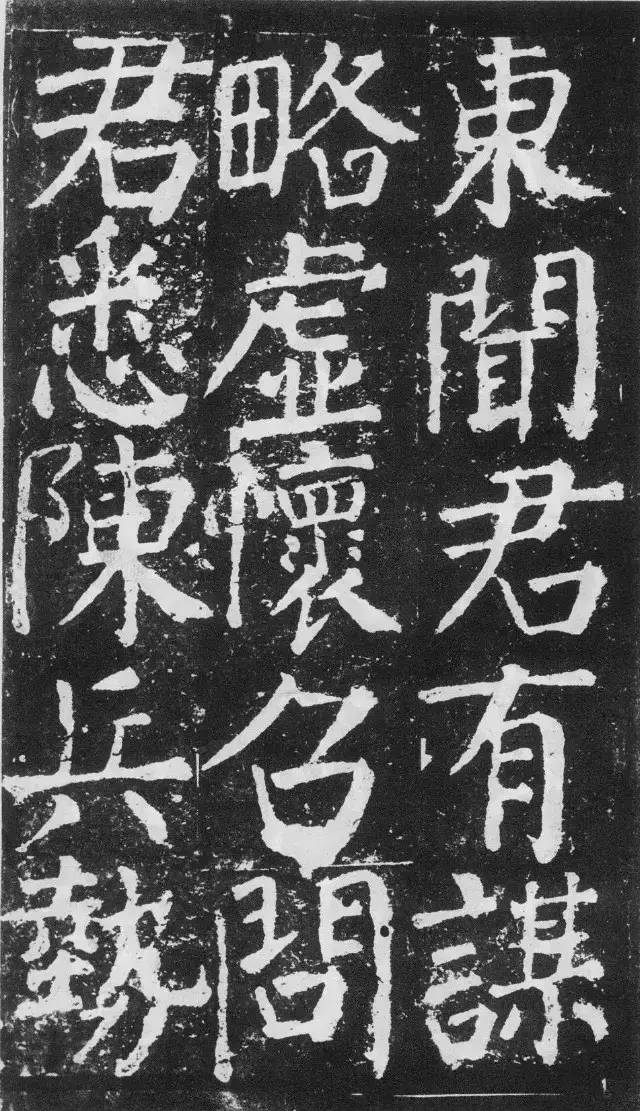 東聞君有謀
略虛懷召問
君悉陳兵勢